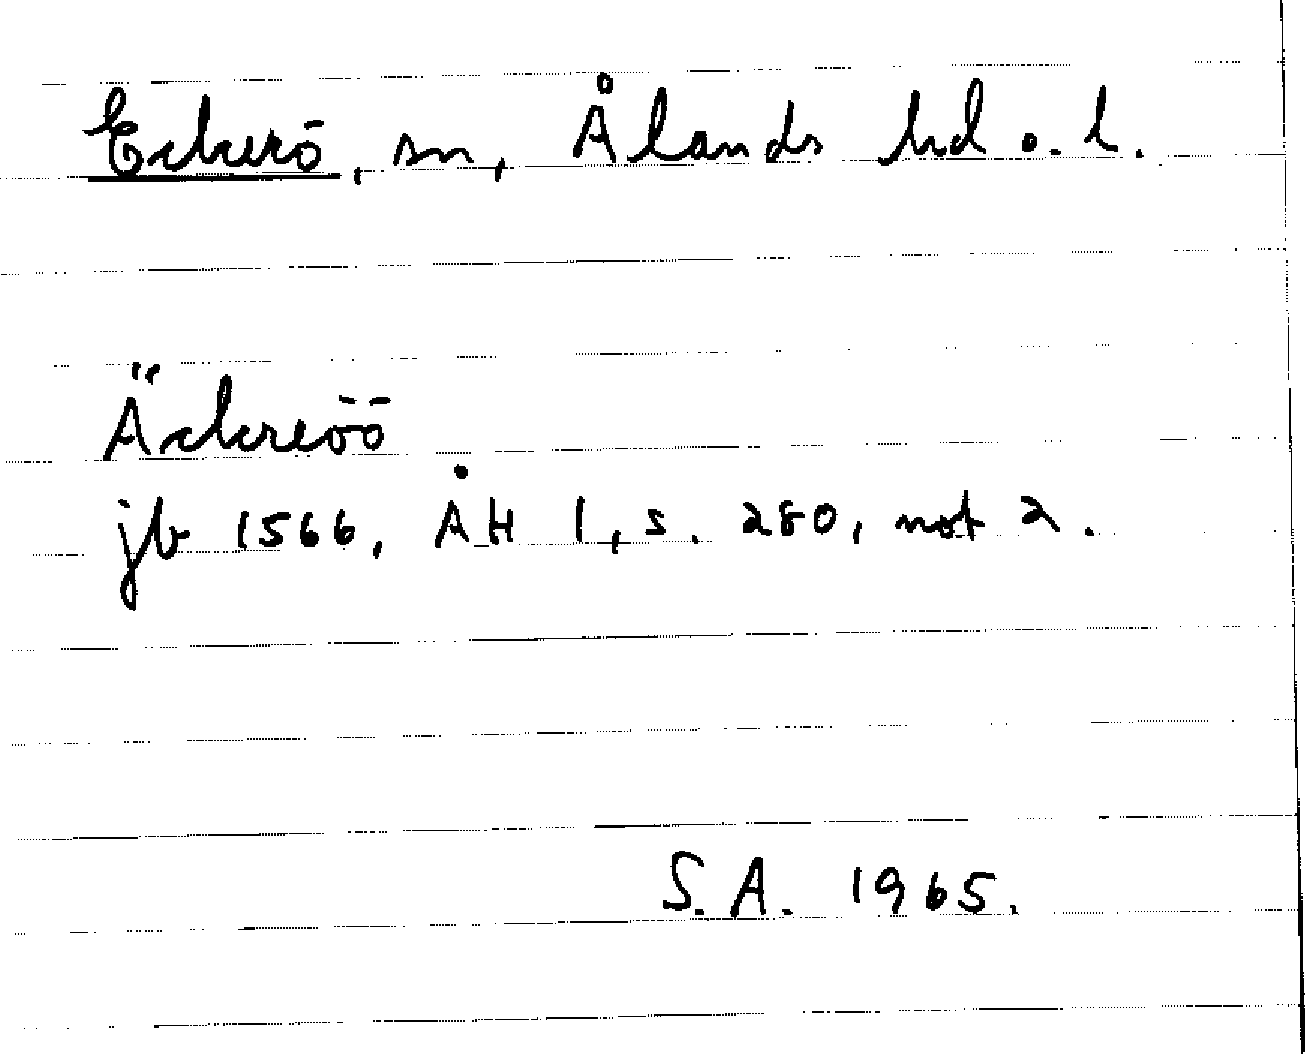 Eckerö, sn, Ålands hd o. l.
Äckreöö
jb 1566, ÅH 1, s. 280, not 2.
S.A. 1965.